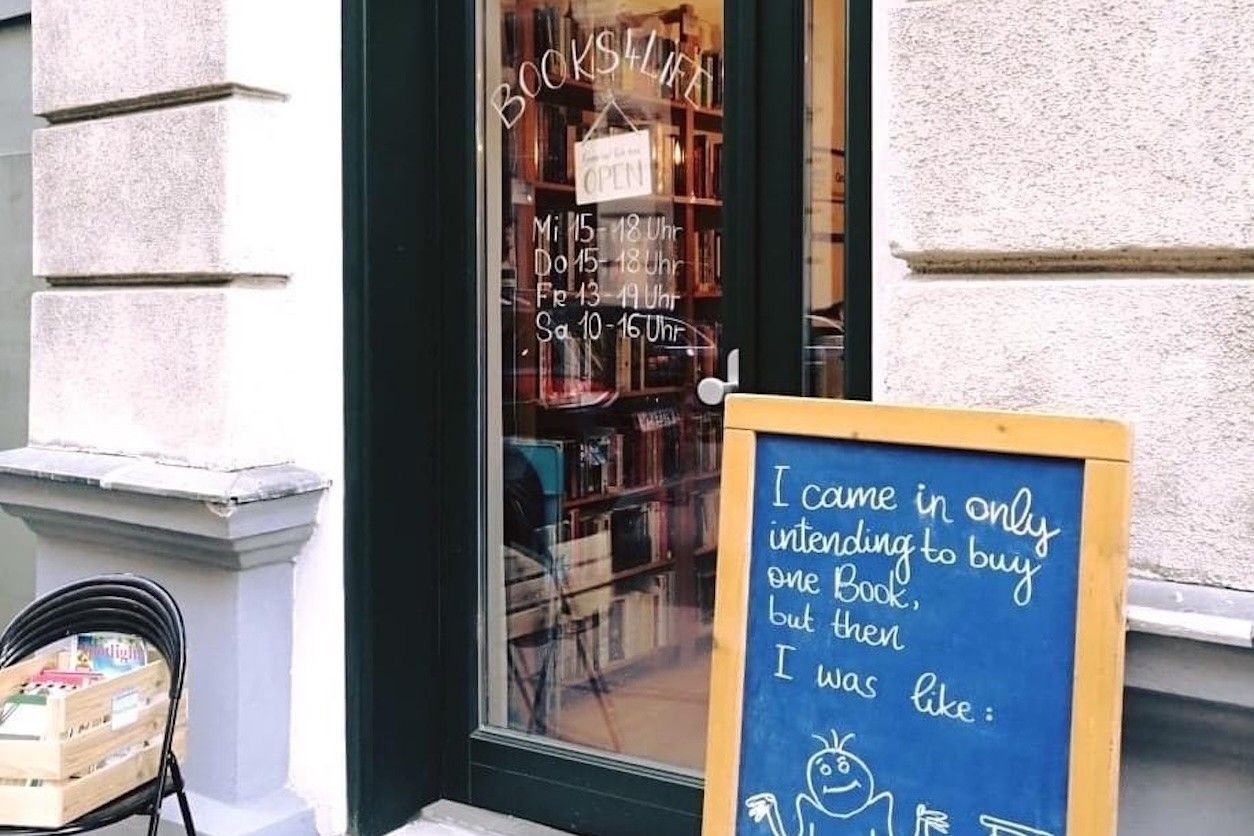 BOOKS4LIFE
OPEN
Mi 15-18 Uhr
Do 15-18 Uhr
Fr 13-19 Uhr
Sa 10-16 Uhr
I came in only
intending to buy
one Book,
but then
I was like:
Spotlight